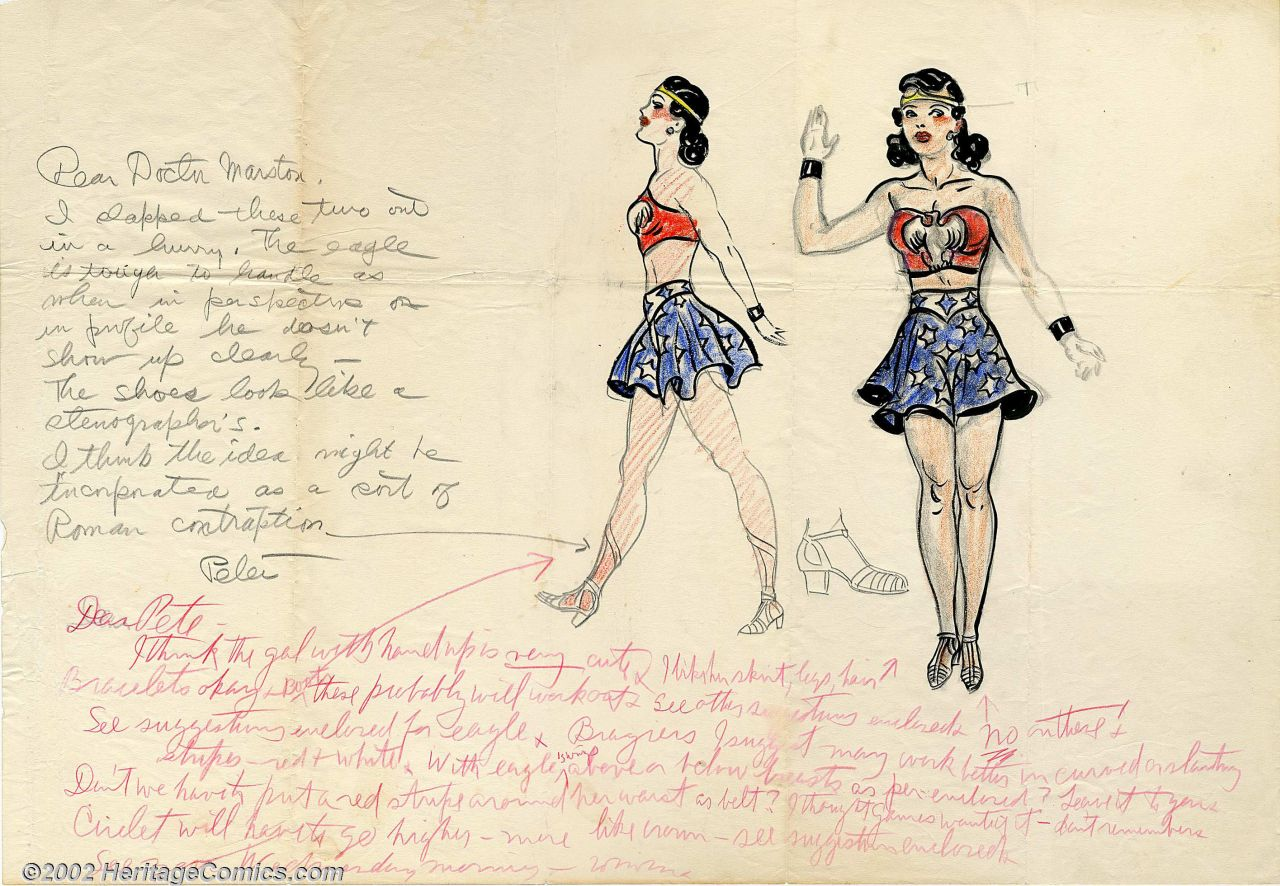 Dear Doctor Marston,
I slapped these two out
in a hurry. The eagle
is tough to handle as
when in perspective or
in profile he doesn't
show up clearly —
The shoes look like a
stenographer's.
I think the idea might be
incorporated as a sort of
Roman contraption
Peter
Dear Pete —
I think the gal with hand up is very cute & I like her skirt, legs, hair
Bracelets okay + boots these probably will work out & See other suggestions enclosed. No on these +
See suggestions enclosed for eagle & Brasiers I suggest may work better in curved or slanting
stripes — red + white & With eagle above or below breasts as per enclosed? Leave it to you
Don't we have to put a red stripe around her waist as belt? I thought Gaines wanted it — don't remember
Circlet will have to go higher — more like crown — see suggestion enclosed
See you Wednesday morning —
©2002 HeritageComics.com